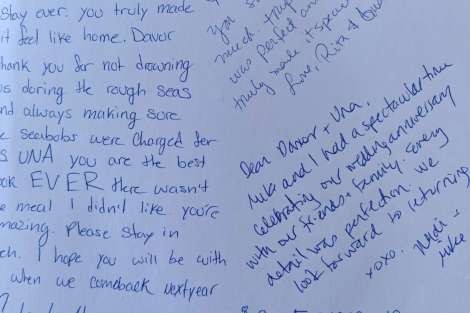 Stay ever. you truly made
it feel like home. Davor
thank you for not drowning
us during the rough seas
and always making sure
e seabobs were charged for
s UNA you are the best
ook EVER there wasn't
e meal I didn't like you're
mazing. Please stay in
ch. I hope you will be with
when we comeback next year
you
much.
was perfect an
truly made it spec
Love, Rita &
Dear Davor + Una,
Mike and I had a spectacular time
celebrating our wedding anniversary
with our friends + family. Every
detail was perfection. We
look forward to returning
xoxo.
Mike